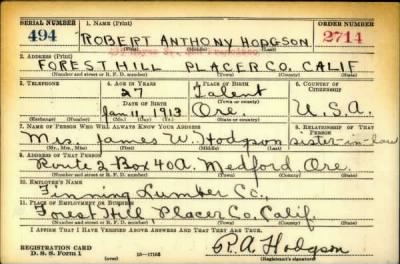 SERIAL NUMBER 1. NAME (Print) ORDER NUMBER
494 ROBERT ANTHONY HODGSON 2714
(First) (Middle) (Last)
2. ADDRESS (Print)
FOREST HILL PLACER CO. CALIF
(Number and street or R. F. D. number) (Town) (County) (State)
3. TELEPHONE 4. AGE IN YEARS 5. PLACE OF BIRTH 6. COUNTRY OF CITIZENSHIP
27 Talent
DATE OF BIRTH (Town or county)
Jan 11, 1913 Ore. U.S.A.
(Exchange) (Number) (Mo.) (Day) (Yr.) (State or country)
7. NAME OF PERSON WHO WILL ALWAYS KNOW YOUR ADDRESS 8. RELATIONSHIP OF THAT PERSON
Mrs. James W. Hodgson sister-in-law
(Mr., Mrs., Miss) (First) (Middle) (Last)
9. ADDRESS OF THAT PERSON
Route 2 Box 40A. Medford Ore.
(Number and street or R. F. D. number) (Town) (County) (State)
10. EMPLOYER'S NAME
Finning Lumber Co.,
11. PLACE OF EMPLOYMENT OR BUSINESS
Forest Hill Placer Co. Calif.
(Number and street or R. F. D. number) (Town) (County) (State)
I AFFIRM THAT I HAVE VERIFIED ABOVE ANSWERS AND THAT THEY ARE TRUE.
REGISTRATION CARD
D. S. S. Form 1 R.A. Hodgson
(over) (Registrant's signature)